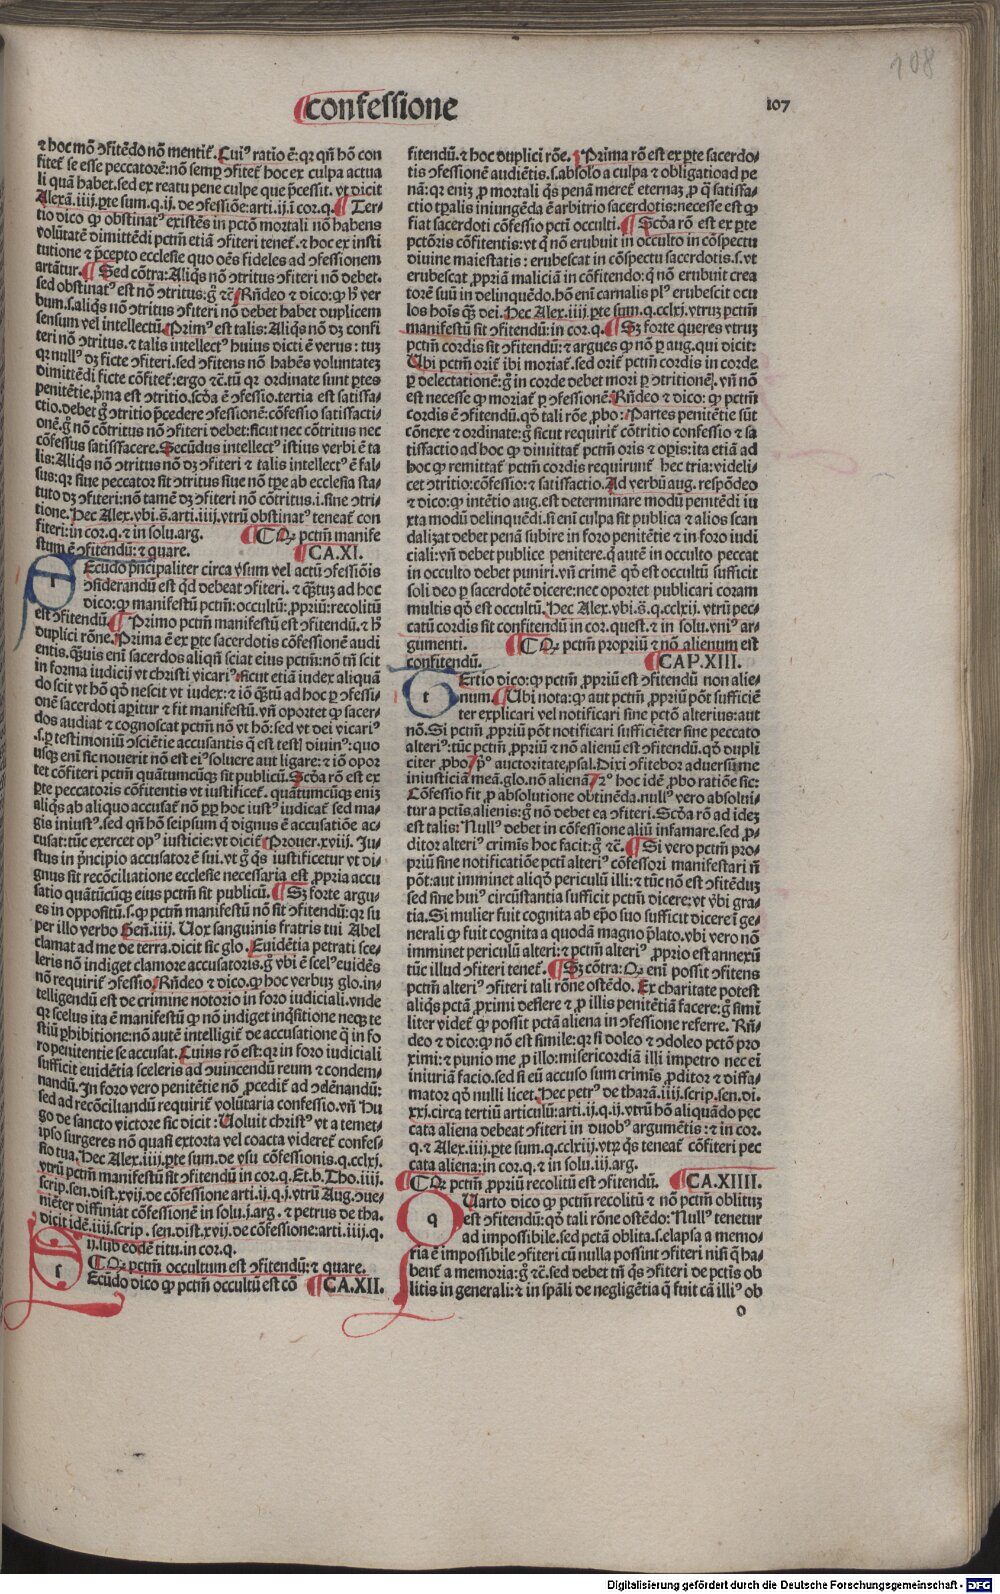 108
confessione
107
⁊ hoc mō ↄfitēdo nō mentit̄. Cuiꝰ ratio ē: qꝛ qn̄ hō con
fitet̄ se esse peccatorē: nō semꝑ ↄfitet̄ hoc ex culpa actua
li quā habet. sed ex reatu pene culpe que p̄cessit. vt dicit
Alexā. iiij. ꝑte sum. q. ij. de ↄfessiōe: arti. ij. ī cor. q. ¶ Ter-
tio dico ꝙ obstinatꝰ existēs in pctō mortali nō habens
volūtatē dimittēdi pctm̄ etiā ↄfiteri tenet̄. ⁊ hoc ex insti
tutione ⁊ p̄cepto ecclesie quo oēs fideles ad ↄfessionem
artātur. ¶ Sed cōtra: Aliqͥs nō ↄtritus ↄfiteri nō debet.
sed obstinatꝰ est nō ↄtritus: g̊ ⁊c̄. Rn̄deo ⁊ dico: ꝙ h̄ ver
bum. s. aliqͥs nō ↄtritus ↄfiteri nō debet habet duplicem
sensum vel intellectū. Primꝰ est talis: Aliqͥs nō dꝫ confi
teri nō ↄtritus. ⁊ talis intellectꝰ huius dicti ē verus: tuꝫ
qꝛ nullꝰ dꝫ ficte ↄfiteri. sed ↄfitens nō habēs voluntateꝫ
dimittēdi ficte cōfitet̄: ergo ⁊c̄. tū qꝛ ordinate sunt ꝑtes
penitētie. p̄ma est ↄtritio. scd̄a ē ↄfessio. tertia est satisfa-
ctio. debet g̊ ↄtritio p̄cedere ↄfessionē: cōfessio satisfacti-
onē. g̊ nō cōtritus nō ↄfiteri debet: sicut nec cōtritus nec
cōfessus satisfacere. Secūdus intellectꝰ istius verbi ē ta
lis: Aliqͥs nō ↄtritus nō dꝫ ↄfiteri ⁊ talis intellectꝰ ē fal-
sus: qꝛ siue peccator sit ↄtritus siue nō tꝑe ab ecclesia sta-
tuto dꝫ ↄfiteri: nō tamē dꝫ ↄfiteri nō cōtritus. i. sine ↄtri-
tione. Hec Alex. vbi. s̄. arti. iiij. vtrū obstinatꝰ teneat̄ con
fiteri: in cor. q. ⁊ in solu. arg. ¶ Qꝙ pctm̄ manife
stum ē ↄfitendū: ⁊ quare. ¶ CA. XI.
Ecūdo p̄ncipaliter circa vsum vel actū ↄfessiōis
ↄsiderandū est qͥd debeat ↄfiteri. ⁊ qͣꝫtuꝫ ad hoc
dico: ꝙ manifestū pctm̄: occultū: ꝓpriū: recolitū
est ↄfitendū. ¶ Primo pctm̄ manifestū est ↄfitendū. ⁊ h̄
duplici rōne. Prima ē ex ꝑte sacerdotis cōfessionē audi
entis. qͣꝫuis enī sacerdos aliqn̄ sciat eius pctm̄: nō tn̄ scit
in forma iudicij vt christi vicariꝰ. sicut etiā index aliquā
do scit vt hō qd̓ nescit vt iudex: ⁊ iō qͣꝫtū ad hoc ꝑ ↄfessi-
onē sacerdoti aꝑitur ⁊ fit manifestū. vn̄ oportet ꝙ sacer-
dos audiat ⁊ cognoscat pctm̄ nō vt hō: sed vt dei vicariꝰ
.s. ꝑ testimoniū ↄsciētie accusantis q̄ est testꝭ diuinꝰ: quo
usqꝫ enī sic nouerit nō est eiꝰ soluere aut ligare: ⁊ iō opor
tet cōfiteri pctm̄ quātumcūqꝫ sit publicū. Scd̄a rō est ex
ꝑte peccatoris cōfitentis vt iustificet̄. quātumcūqꝫ eniꝫ
aliqͥs ab aliquo accusat̄ nō ꝓpꝛ hoc iustꝰ iudicat̄ sed ma-
gis iniustꝰ. sed qn̄ hō seipsum q̄ dignus ē accusatiōe ac-
cusat: tūc exercet opꝰ iusticie: vt dicit̄ Prouer. xviij. Ju-
stus in p̄ncipio accusator ē sui. vt g̊ qͥs iustificetur vt di-
gnus sit recōciliatione ecclesie necessaria est ꝓpria accu
satio quātūcūqꝫ eius pctm̄ sit publicū. ¶ Sꝫ forte argu-
es in oppositū. s. ꝙ pctm̄ manifestū nō sit ↄfitendū: qꝛ su
per illo verbo Gen̄. iiij. Uox sanguinis fratris tui Abel
clamat ad me de terra. dicit sic glo. Euidētia petrati sce-
leris nō indiget clamore accusatoris. g̊ vbi ē scelꝰ euidēs
nō requirit̄ ↄfessio. Rn̄deo ⁊ dico. ꝙ hoc verbuꝫ glo. in-
telligendū est de crimine notorio in foro iudiciali. vnde
qꝛ scelus ita ē manifestū ꝙ nō indiget inqͥsitione neqꝫ te
stiū ꝓhibitione: nō autē intelligit̄ de accusatione q̄ in fo
ro penitentie se accusat. Cuius rō est: qꝛ in foro iudiciali
sufficit euidētia sceleris ad ↄuincendū reum ⁊ condem-
nandū. In foro vero penitētie nō ꝓcedit̄ ad ↄdēnandū:
sed ad recōciliandū requirit̄ volūtaria confessio. vn̄ Hu
go de sancto victore sic dicit: Uoluit christꝰ vt a temet-
ipso surgeres nō quasi extorta vel coacta videret̄ confes-
sio tua. Hec Alex. iiij. ꝑte sum. de vsu cōfessionis. q. cclxj.
vtrū pctm̄ manifestū sit ↄfitendū in cor. q. Et. b. Tho. iiij.
scrip. sen. dist. xvij. de cōfessione arti. ij. q. j. vtrū Aug. ↄue-
niēter diffiniat cōfessionē in solu. j. arg. ⁊ petrus de tha-
dicit idē. iiij. scrip. sen. dist. xvij. de cōfessione: arti. iiij. q.
ij. sub eodē titu. in cor. q.
¶ Qꝙ pctm̄ occultum est ↄfitendū: ⁊ quare.
Ecūdo dico ꝙ pctm̄ occultū est cō ¶ CA. XII.
fitendū. ⁊ hoc duplici rōne. Prima rō est ex ꝑte sacerdo-
tis ↄfessionē audiētis. s. absolo a culpa ⁊ obligatioad pe
nā: qꝛ eniꝫ ꝓ mortali qͥs penā meret̄ eternaꝫ. ꝓ q̄ satisfa-
ctio tꝑalis iniungēda ē arbitrio sacerdotis: necesse est ꝙ
fiat sacerdoti cōfessio pctī occulti. ¶ Scd̄a rō est ex ꝑte
pctōris cōfitentis: vt q̄ nō erubuit in occulto in cōspectu
diuine maiestatis: erubescat in cōspectu sacerdotis. s. vt
erubescat ꝓpriā maliciā in cōfitendo: q̄ nō erubuit crea
torē suū in delinquēdo. hō enī carnalis plꝰ erubescit ocu
los hoīs qͣꝫ dei. Hec Alex. iiij. ꝑte sum. q. cclxj. vtruꝫ pctm̄
manifestū sit ↄfitendū: in cor. q. ¶ Sꝫ forte queres vtruꝫ
pctm̄ cordis sit ↄfitendū: ⁊ argues ꝙ nō ꝑ aug. qui dicit:
Ubi pctm̄ orit̄ ibi moriat̄. sed orit̄ pctm̄ cordis in corde
ꝑ delectationē: g̊ in corde debet mori ꝑ ↄtritionēj. vn̄ nō
est necesse ꝙ moriat̄ ꝑ ↄfessionē. Rn̄deo ⁊ dico: ꝙ pctm̄
cordis ē ↄfitendū. qd̓ tali rōe ꝓbo: Partes penitētie sūt
cōnexe ⁊ ordinate: g̊ sicut requirit̄ cōtritio confessio ⁊ sa
tisfactio ad hoc ꝙ dimittat̄ pctm̄ oris ⁊ oꝑis: ita etiā ad
hoc ꝙ remittat̄ pctm̄ cordis requirunt̄ hec tria: videli-
cet ↄtritio: cōfessio: ⁊ satisfactio. Ad verbū aug. respōdeo
⁊ dico: ꝙ intētio aug. est determinare modū penitēdi iu
xta modū delinquēdi. si enī culpa sit publica ⁊ alios scan
dalizat debet penā subire in foro penitētie ⁊ in foro iudi
ciali: vn̄ debet publice penitere. q̄ autē in occulto peccat
in occulto debet puniri. vn̄ crimē qd̓ est occultū sufficit
soli deo ꝑ sacerdotē dicere: nec oportet publicari coram
multis qd̓ est occultū. Hec Alex. vbi. s̄. q. cclxij. vtrū pec-
catū cordis sit confitendū in cor. quest. ⁊ in solu. vniꝰ ar-
gumenti. ¶ Qꝙ pctm̄ propriū ⁊ nō alienum est
confitendū. ¶ CAP. XIII.
Ertio dico: ꝙ pctm̄ ꝓpriū est ↄfitendū non alie-
num. ¶ Ubi nota: ꝙ aut pctm̄ ꝓpriū pōt sufficiē
ter explicari vel notificari sine pctō alterius: aut
nō. Si pctm̄ ꝓpriū pōt notificari sufficiēter sine peccato
alteriꝰ: tūc pctm̄ ꝓpriū ⁊ nō alienū est ↄfitendū. qd̓ dupli
citer ꝓbo pͦ auctoritate. psal. Dixi ↄfitebor aduersuꝫ me
iniusticiā meā. glo. nō alienā. 2ͦ hoc idē ꝓbo ratiōe sic:
Cōfessio fit ꝓ absolutione obtinēda. nullꝰ vero absolui-
tur a pctis alienis: g̊ nō debet ea ↄfiteri. Scd̄a rō ad ideꝫ
est talis: Nullꝰ debet in cōfessione aliū infamare. sed ꝓ-
ditor alteriꝰ crimīs hoc facit: g̊ ⁊c̄. ¶ Si vero pctm̄ pro-
priū sine notificatiōe pctī alteriꝰ cōfessori manifestari nō
pōt: aut imminet aliqd̓ periculū illi: ⁊ tūc nō est ↄfitēduꝫ
sed sine huiꝰ circūstantia sufficit pctm̄ dicere: vt v̓bi gra-
tia. Si mulier fuit cognita ab ep̄o suo sufficit dicere ī ge-
nerali ꝙ fuit cognita a quodā magno p̄lato. vbi vero nō
imminet periculū alteri: ⁊ pctm̄ alteriꝰ ꝓprio est annexū
tūc illud ↄfiteri tenet̄. ¶ Sꝫ cōtra: Qꝙ enī possit ↄfitens
pctm̄ alteriꝰ ↄfiteri tali rōne ostēdo. Ex charitate potest
aliqͥs pctā ꝓximi deflere ⁊ ꝓ illis penitētiā facere: g̊ simī
liter videt̄ ꝙ possit pctā aliena in ↄfessione referre. Rn̄-
deo ⁊ dico: ꝙ nō est simile: qꝛ si doleo ⁊ ↄdoleo pctō pro
ximi: ⁊ punio me ꝓ illo: misericordiā illi impetro nec ei
iniuriā facio. sed si eū accuso sum crimīs ꝓditor ⁊ diffa-
mator qd̓ nulli licet. Hec petrꝰ de tharā. iiij. scrip. sen. di.
xxj. circa tertiū articulū: arti. ij. q. ij. vtrū hō aliquādo pec
cata aliena debeat ↄfiteri in duobꝰ argumētis: ⁊ in cor.
q. ⁊ Alex. iiij. ꝑte sum. q. cclxiij. vtꝝ qͥs teneat̄ cōfiteri pec
cata aliena: in cor. q. ⁊ in solu. iij. arg.
¶ Qꝙ pctm̄ ꝓpriū recolitū est ↄfitendū. ¶ CA. XIIII.
Uarto dico ꝙ pctm̄ recolitū ⁊ nō pctm̄ oblituꝫ
est ↄfitendū: qd̓ tali rōne ostēdo: Nullꝰ tenetur
ad impossibile. sed petā oblita. s. elapsa a memo-
ria ē impossibile ↄfiteri cū nulla possint ↄfiteri nisi q̄ ha-
bent̄ a memoria: g̊ ⁊c̄. sed debet tn̄ qͥs ↄfiteri de pctis ob
litis in generali: ⁊ in sp̄ali de negligētia q̄ fuit cā illiꝰ ob
o
Digitalisierung gefördert durch die Deutsche Forschungsgemeinschaft - DFG